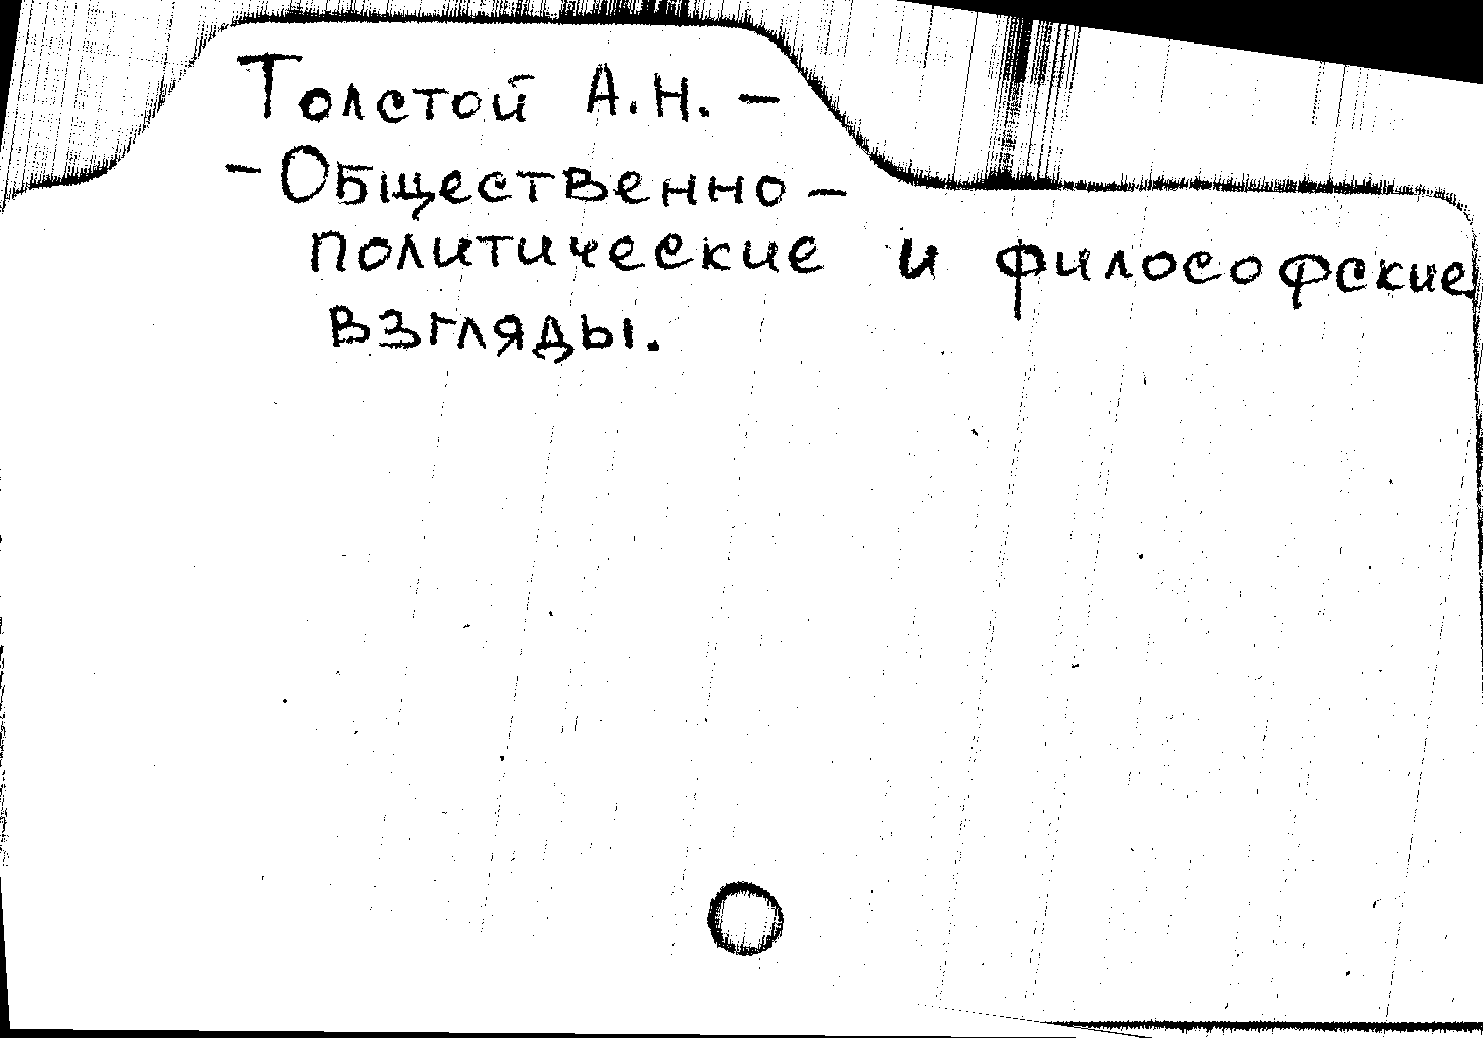 Толстой А.Н. –
– Общественно –
политические и философские
взгляды.